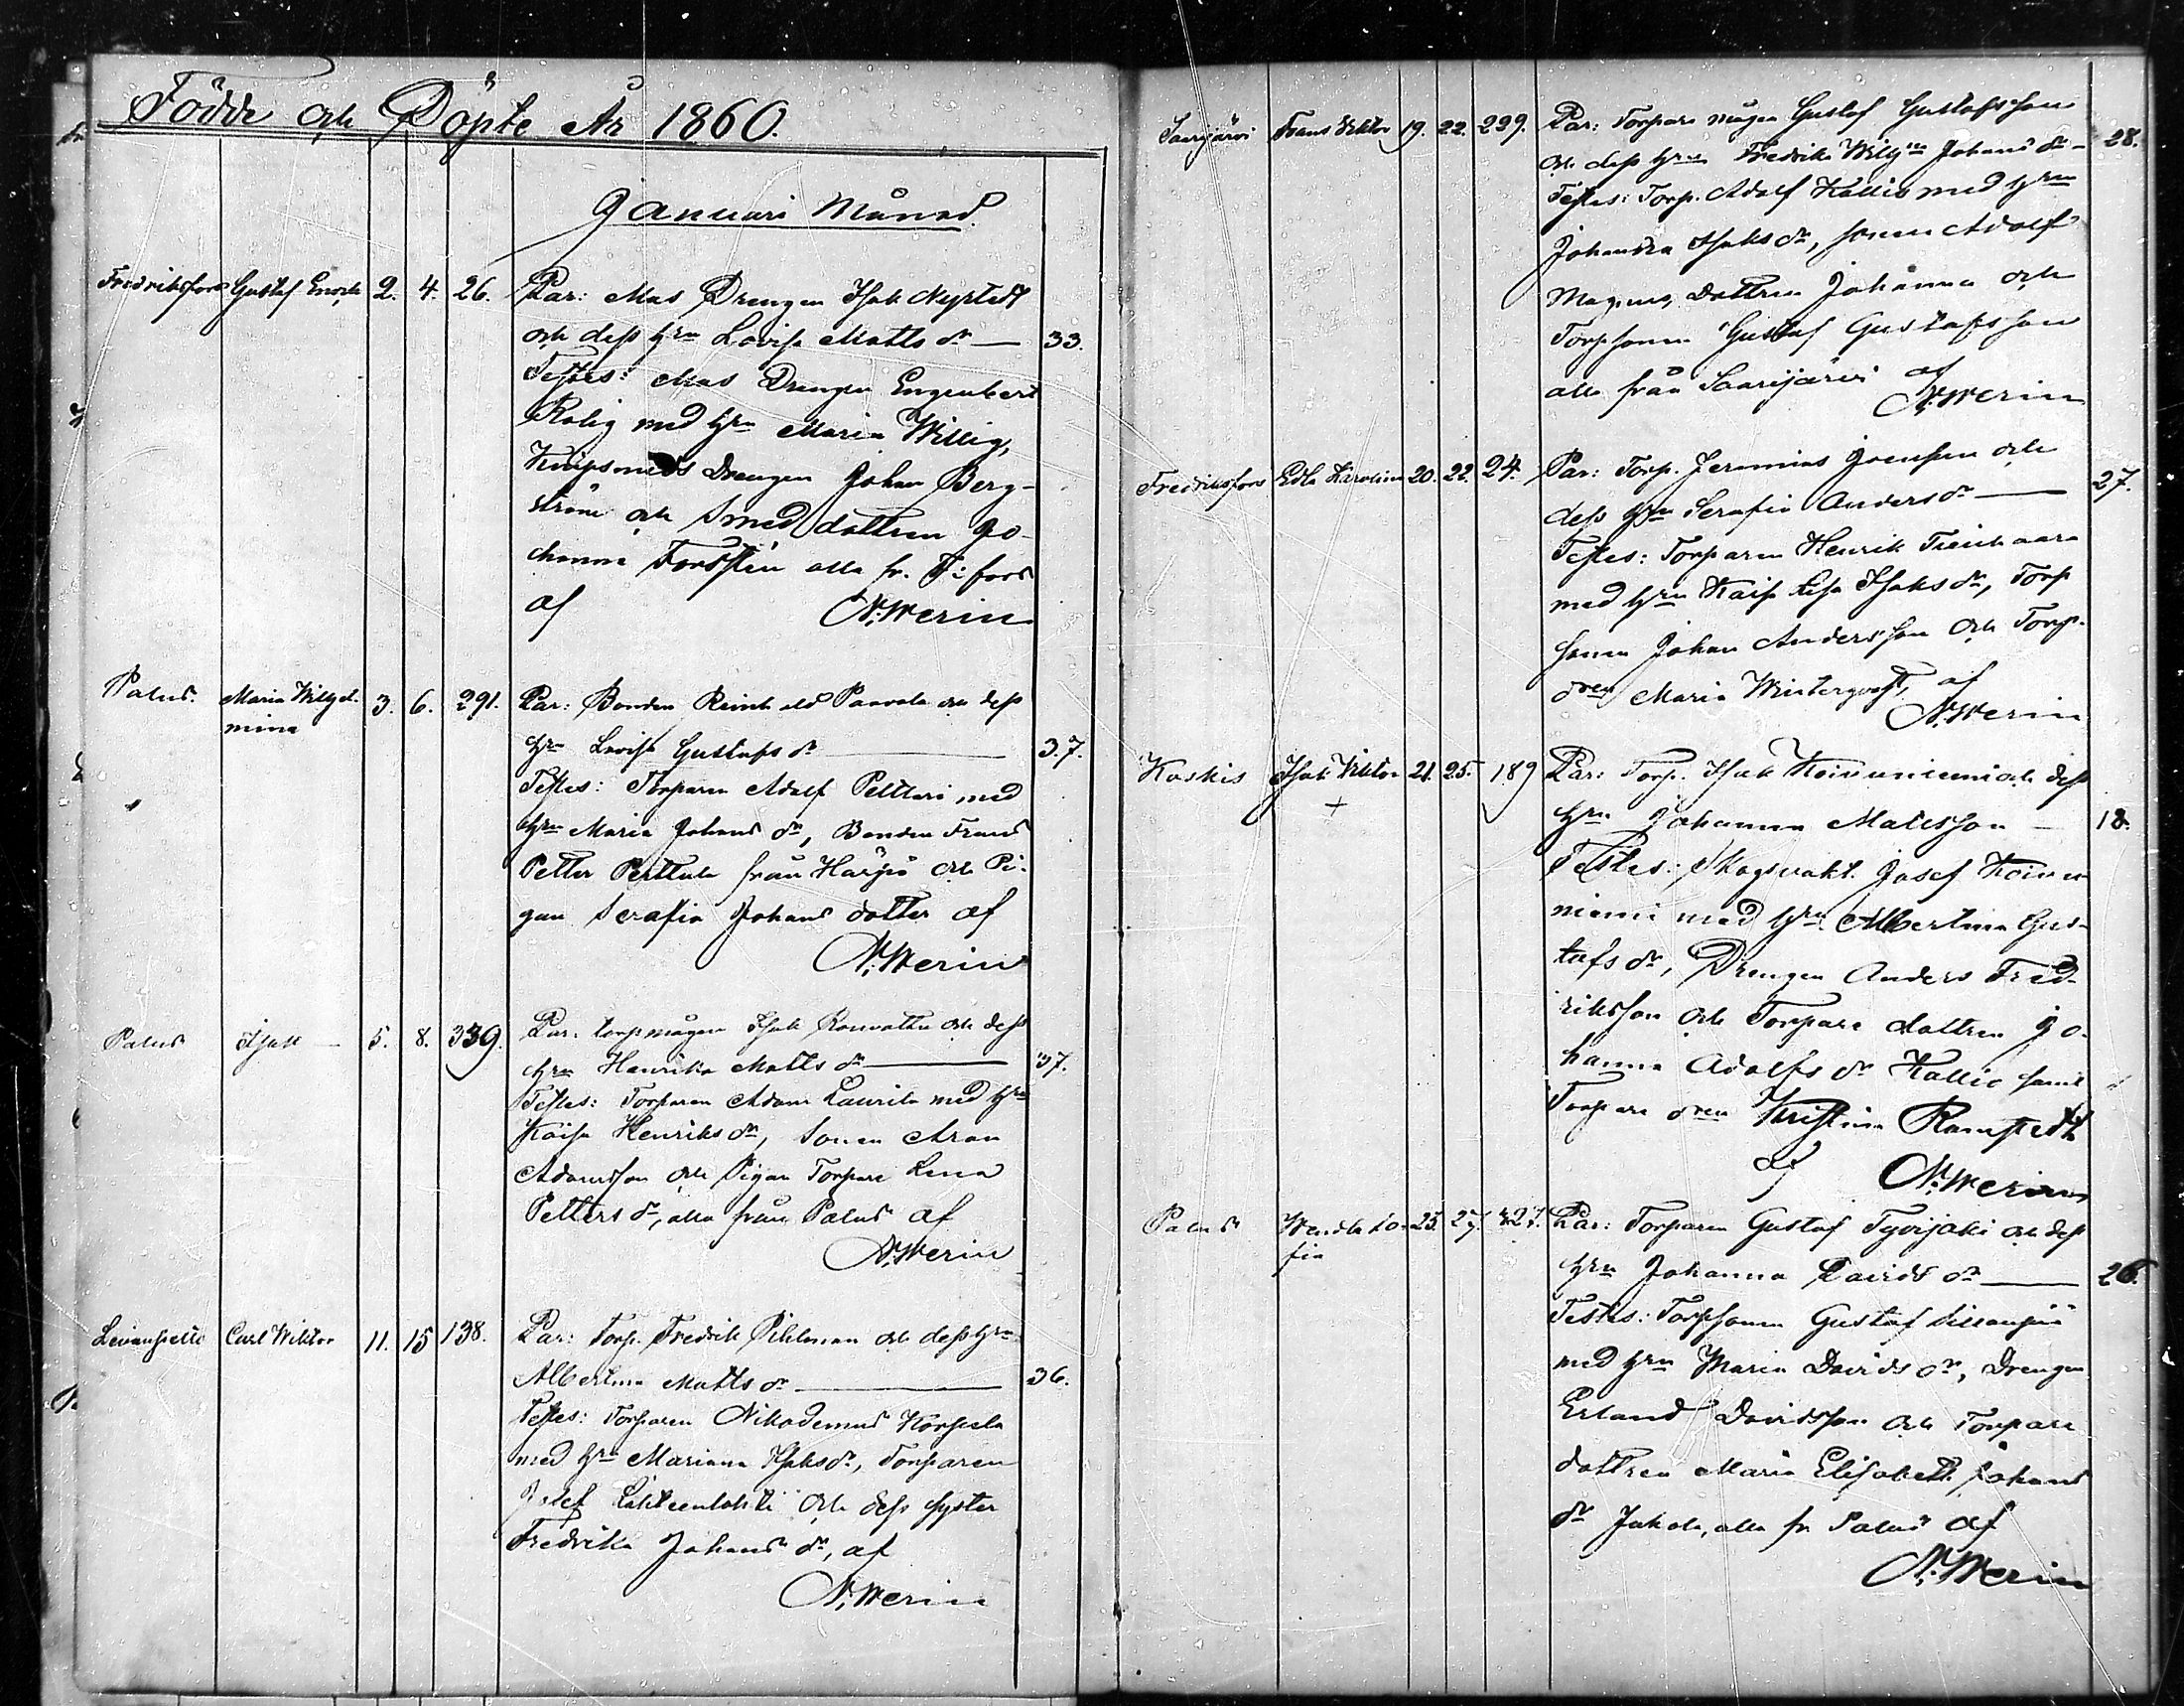 Födde och Döpte År 1860.
Januari Månad.
Fredriksfors Gustaf Enoch 2. 4. 26. Par: Mas Drengen Isak Nystedt
och dess hru Lovisa Matts dr — 33.
Testes: Mas Drengen Engenbert
Rolig med hru Maria Willig,
Knipsmeds Drengen Johan Berg-
ström och Smed dottren Jo-
hanna Forsstén alla fr. F:fors
af N:Werin
Palus. Maria Wilhel- 3. 6. 291. Par: Bonden Reinhold Paavola och dess
mina hru Lovisa Gustafs dr — 37.
Testes: Torparen Adolf Pelttari med
hru Maria Johans dr, Bonden Frans
Petter Perttula från Harjo och Pi-
gan Serafia Johans dotter af
N:Werin
Palus Isak — 5. 8. 339. Par: torpmågen Isak Ronvatta och dess
hru Henrika Matts dr — 37.
Testes: Torparen Adam Laurila med hru
Kaisa Henriks dr, Sonen Aron
Adamsson och Pigan Torpare Lena
Petters dr, alla från Palus af
N:Werin
Carl Wiktor 11. 15 138. Par: Torp. Fredrik Pihlman och dess hru
Albertina Matts dr — 36.
Testes: Torparen Nikodemus Korpela
med hru Mariana Isaks dr, Torparen
Josef Lähteenlahti och dess syster
Fredrika Johans dr, af
N:Werin
Saarijärvi Frans Viktor 19. 22. 229. Par: Torpare mågen Gustaf Gustafsson
och dess hru Fredrika Wilh:na Johans dr — 28.
Testes: Torp. Adolf Kallio med hru
Johanna Isaks dr, sonen Adolf
Magnus, Dottren Johanna och
Torpsonen Gustaf Gustafsson
alla från Saarijärvi af
N:Werin
Fredriksfors Edla Karolina 20. 22. 24. Par: Torp. Jeremias Joensuu och
dess hru Serafia Anders dr — 27.
Testes: Torparen Henrik
med hru Kaisa Lisa Isaks dr, Torp
sonen Johan Andersson och Torp-
dren Maria Winterqvist, af
N:Werin
Koskis Isak Viktor 21. 25. 189 Par: Torp. Isak Koivuniemi och dess
+ hru Johanna Matsson — 18.
Testes: Skogsvakt. Josef Koivu
niemi med hru Albertina Gus-
tafs dr, Drengen Anders Fred-
riksson och Torpare dottren Jo-
hanna Adolfs dr Kallio samt
Torpare dren Kristina Ramstedt
af N:Werin
Palus Wendla So- 25. 27. 327. Par: Torparen Gustaf Tyvijoki och dess
fia hru Johanna Davids dr — 26.
Testes: Torpsonen Gustaf
med hru Maria Davids dr, Drengen
Erland Davidsson och Torpare
dottren Maria Elisabeth Johans
dr Jakola, alla fr Palus af
N:Werin